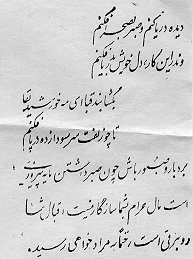 دیده دریا کنم و صبر بصحرا فکنم
وندرین کار دل خویش بدریا فکنم
بگشا بند قبا ای مه خورشید لقا
تا چو زلفت سر سودازده در پا فکنم
بردبار و صبور باش چون صبر داشتن مایه پیروزی
است مال حرام بشما سازگار نیست اقبال شما
رو بترقی است حتما به مراد خواهی رسید